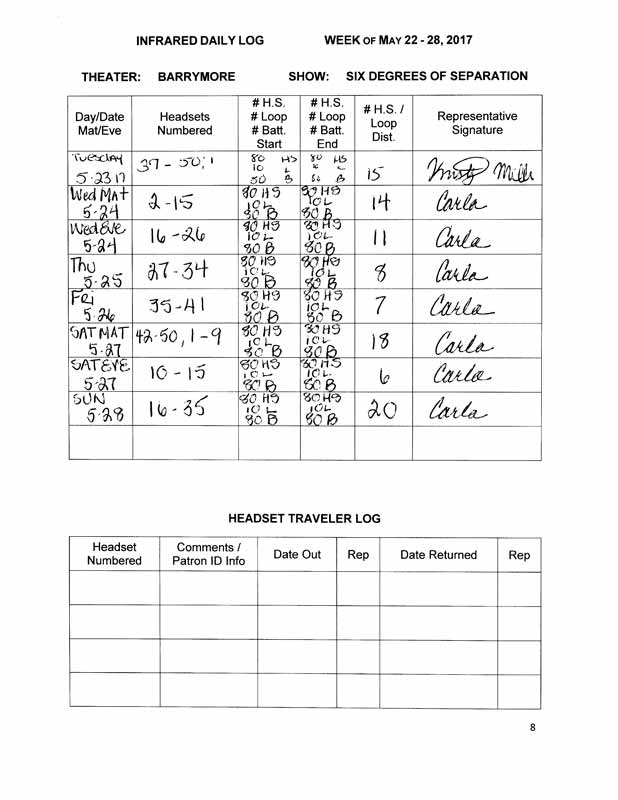 INFRARED DAILY LOG WEEK OF MAY 22 - 28, 2017
THEATER: BARRYMORE SHOW: SIX DEGREES OF SEPARATION
Day/Date Mat/Eve Headsets Numbered # H.S. # Loop # Batt. Start # H.S. # Loop # Batt. End # H.S. / Loop Dist. Representative Signature
Tuesday 5-23 17 37 - 50, 1 80 HS 10 L 50 B 80 HS L 50 B 15 Kristy Mills
Wed Mat 5-24 2-15 80 HS 10 L 80 B 80 HS 10 L 80 B 14 Carla
Wed Eve 5-24 16-26 80 HS 10 L 80 B 80 HS 10 L 80 B 11 Carla
Thu 5-25 27-34 80 HS 10 L 80 B 80 HS 10 L 80 B 8 Carla
Fri 5-26 35-41 80 HS 10 L 80 B 80 HS 10 L 80 B 7 Carla
SAT MAT 5-27 42-50, 1-9 80 HS 10 L 80 B 80 HS 10 L 80 B 18 Carla
SAT EVE 5-27 10-15 80 HS 10 L 80 B 80 HS 10 L 80 B 6 Carla
SUN 5-28 16-35 80 HS 10 L 80 B 80 HS 10 L 80 B 20 Carla
HEADSET TRAVELER LOG
Headset Numbered Comments / Patron ID Info Date Out Rep Date Returned Rep
8